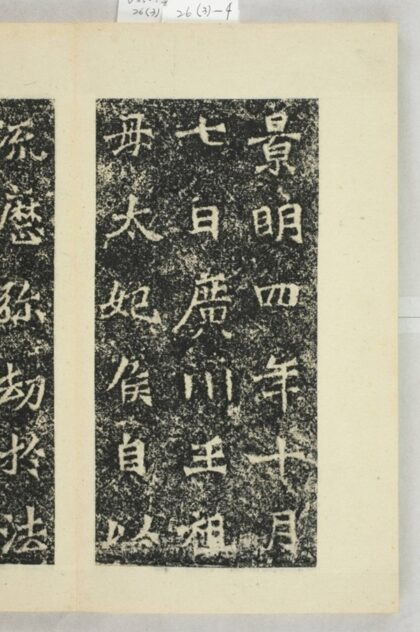 26(3)-4
26(3)
景明四年十月
七日廣川王祖
母太妃侯自以
流歷弥劫於法